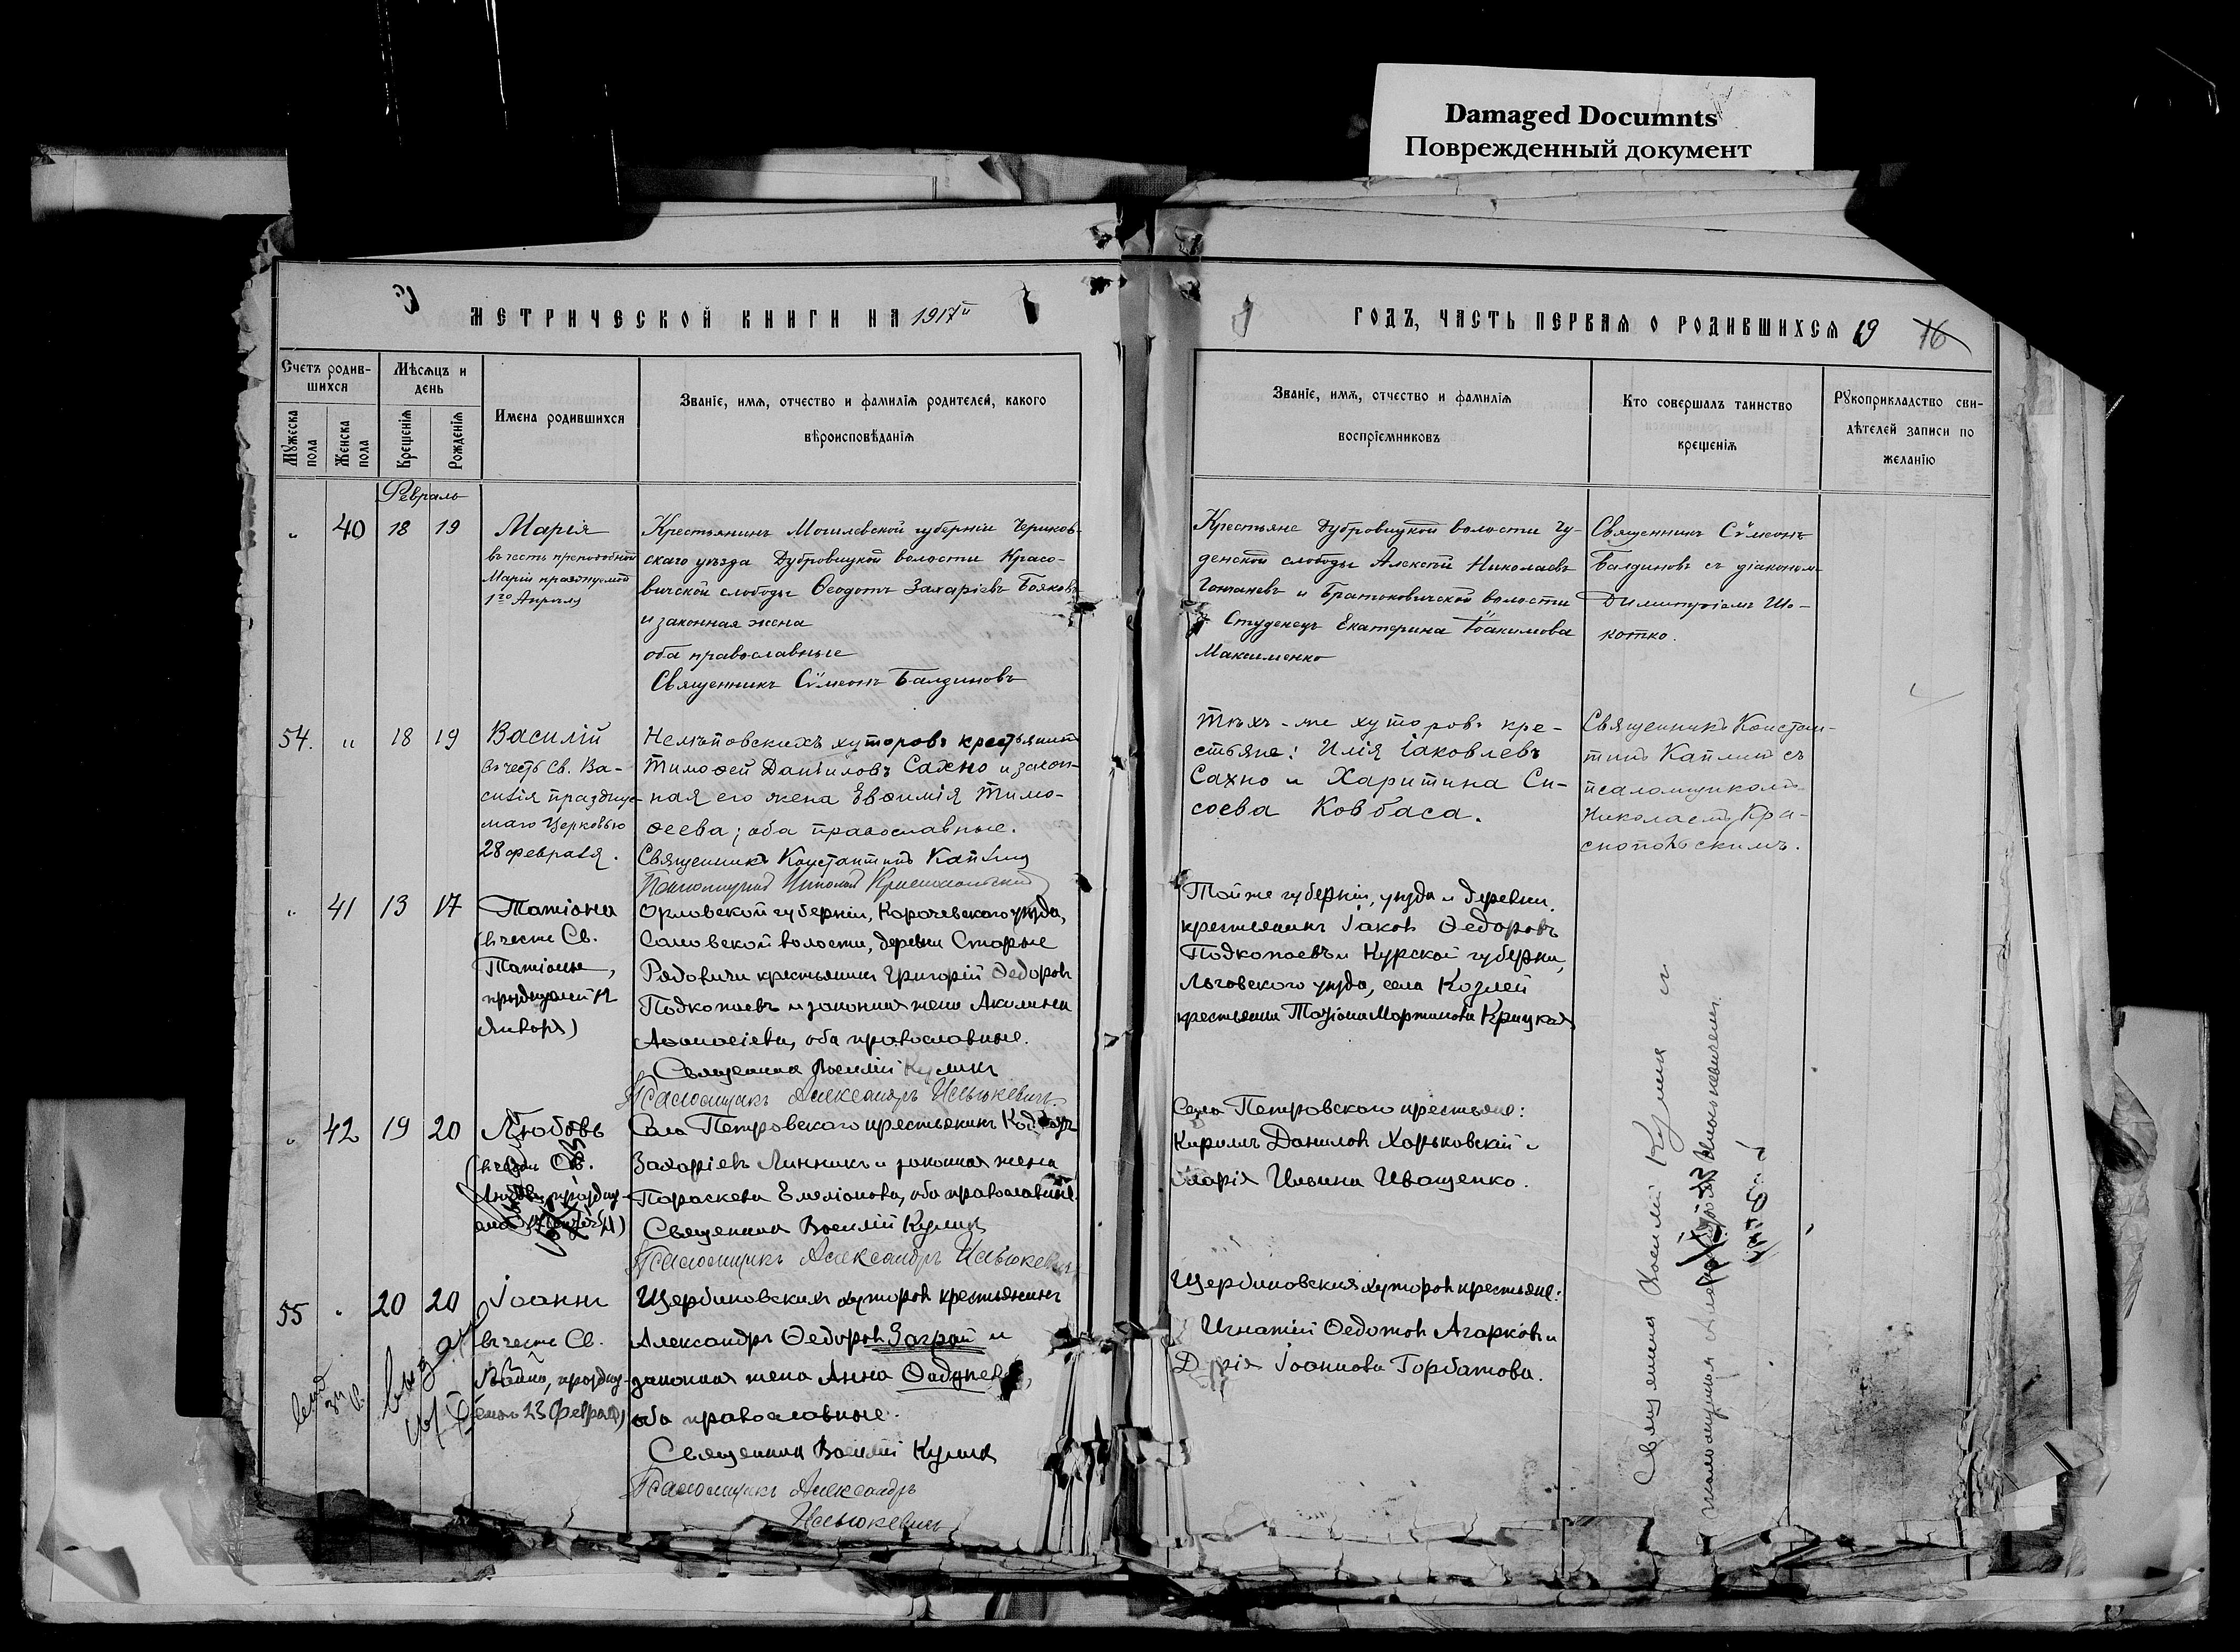 Damaged Documnts
Поврежденный документ
МЕТРИЧЕСКОЙ КНИГИ НА 1917й
ГОДЪ, ЧАСТЬ ПЕРВАЯ О РОДИВШИХСЯ 19 16
Счетъ родив-
шихся
Мѣсяцъ и
день
Мужеска пола
Женска пола
Крещенія
Рожденія
Имена родившихся
Званіе, имя, отчество и фамилія родителей, какого
вѣроисповѣданія
Званіе, имя, отчество и фамилія
воспріемниковъ
Кто совершалъ таинство
крещенія
Рукоприкладство сви-
дѣтелей записи по
желанію
Февраль
" 40 18 19
Марія
въ честь преподобной
Маріи празднуемой
1го Апрѣля
Крестьянинъ Могилевской губерніи Чериков-
скаго уѣзда Дубровицкой волости Красо-
вичской слободы Ѳеодотъ Захаріевъ Бояковъ
и законная жена
оба православные
Священникъ Сѵмеонъ Балдиновъ
Крестьяне Дубровицкой волости Чу-
денской слободы Алексѣй Николаевъ
и Братьковичской волости
Студенецъ Екатерина Іоакимова
Максименко
Священникъ Сѵмеонъ
Балдиновъ съ діакономъ
Димитріемъ Шо-
котко.
54. " 18 19
Василій
въ честь Св. Ва-
силія празднуе-
маго Церковью
28 февраля.
Нелѣповскихъ хуторовъ крестьянинъ
Тимоѳей Даніиловъ Сахно и закон-
ная его жена Евѳимія Тимо-
ѳеева; оба православные.
Священникъ Константинъ Каплинъ
Псаломщикъ Николай Краснопольскій
Тѣхъ-же хуторовъ кре-
стьяне: Илія Іаковлевъ
Сахно и Харитина Си-
соева Ковбаса.
Священникъ Констан-
тинъ Каплинъ съ
псаломщикомъ
Николаемъ Кра-
снопольскимъ.
" 41 13 17
Татіана
(въ честь Св.
Татіаны,
празднуемой 12
Января)
Орловской губерніи, Карачевскаго уѣзда,
Самовской волости, деревни Старые
Рядовичи крестьянинъ Григорій Ѳедоровъ
Подкопаевъ и законная жена Акилина
Аѳанасіева, оба православные.
Священникъ Василій Куликъ
Псаломщикъ Александръ Ильюкевичъ.
Той же губерніи, уѣзда и деревни,
крестьянинъ Іаковъ Ѳедоровъ
Подкопаевъ и Курской губерніи,
Льговскаго уѣзда, села Козлей
крестьянка Татіана Мартинова Крицкая
" 42 19 20
Любовь
(въ честь Св.
Любови, празднуе-
Села Петровскаго крестьянинъ
Захаріевъ Линникъ и законная жена
Параскева Емеліанова, оба православные.
Священникъ Василій Куликъ
Псаломщикъ Александръ Ильюкевичъ
Села Петровскаго крестьяне:
Кириллъ Даниловъ Харьковскій и
Марія Ильина Иващенко.
55 " 20 20
Іоаннъ
въ честь Св.
Іоанна, праздну-
емаго 23 Февраля)
Щербиновскихъ хуторовъ крестьянинъ
Александръ Ѳедоровъ Заграй и
законная жена Анна Ѳаддѣева,
оба православные.
Священникъ Василій Куликъ
Псаломщикъ Александръ
Ильюкевичъ
Щербиновскихъ хуторовъ крестьяне:
Игнатій Ѳедотовъ Агарковъ и
Дарія Іоаннова Горбатова.
Священникъ Василій Куликъ и